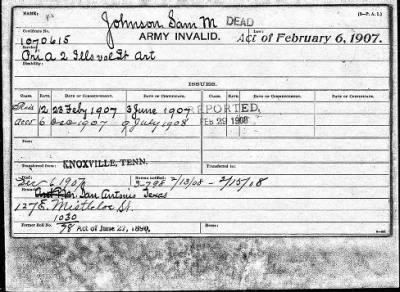 NAME: Johnson Sam M DEAD (3-P. A. I.)
Certificate No. ARMY INVALID. Law:
1070615 Act of February 6, 1907.
Pri A 2 Ills vol Lt Art
Disability:
ISSUED.
CLASS. RATE. DATE OF COMMENCEMENT. DATE OF CERTIFICATE. CLASS. RATE. DATE OF COMMENCEMENT. DATE OF CERTIFICATE.
12 23 Feby 1907 3 June 1907 REPORTED,
6 1907 9 July 1908 FEB 29 1908
Transferred from: KNOXVILLE, TENN. Transferred to:
Date
Dec 6 1907 3-298 2/13/08 - 2/15/08
San Antonio Texas
127 E. Mistletoe St.
1030
Former Roll No. 98 Act of June 27, 1890,